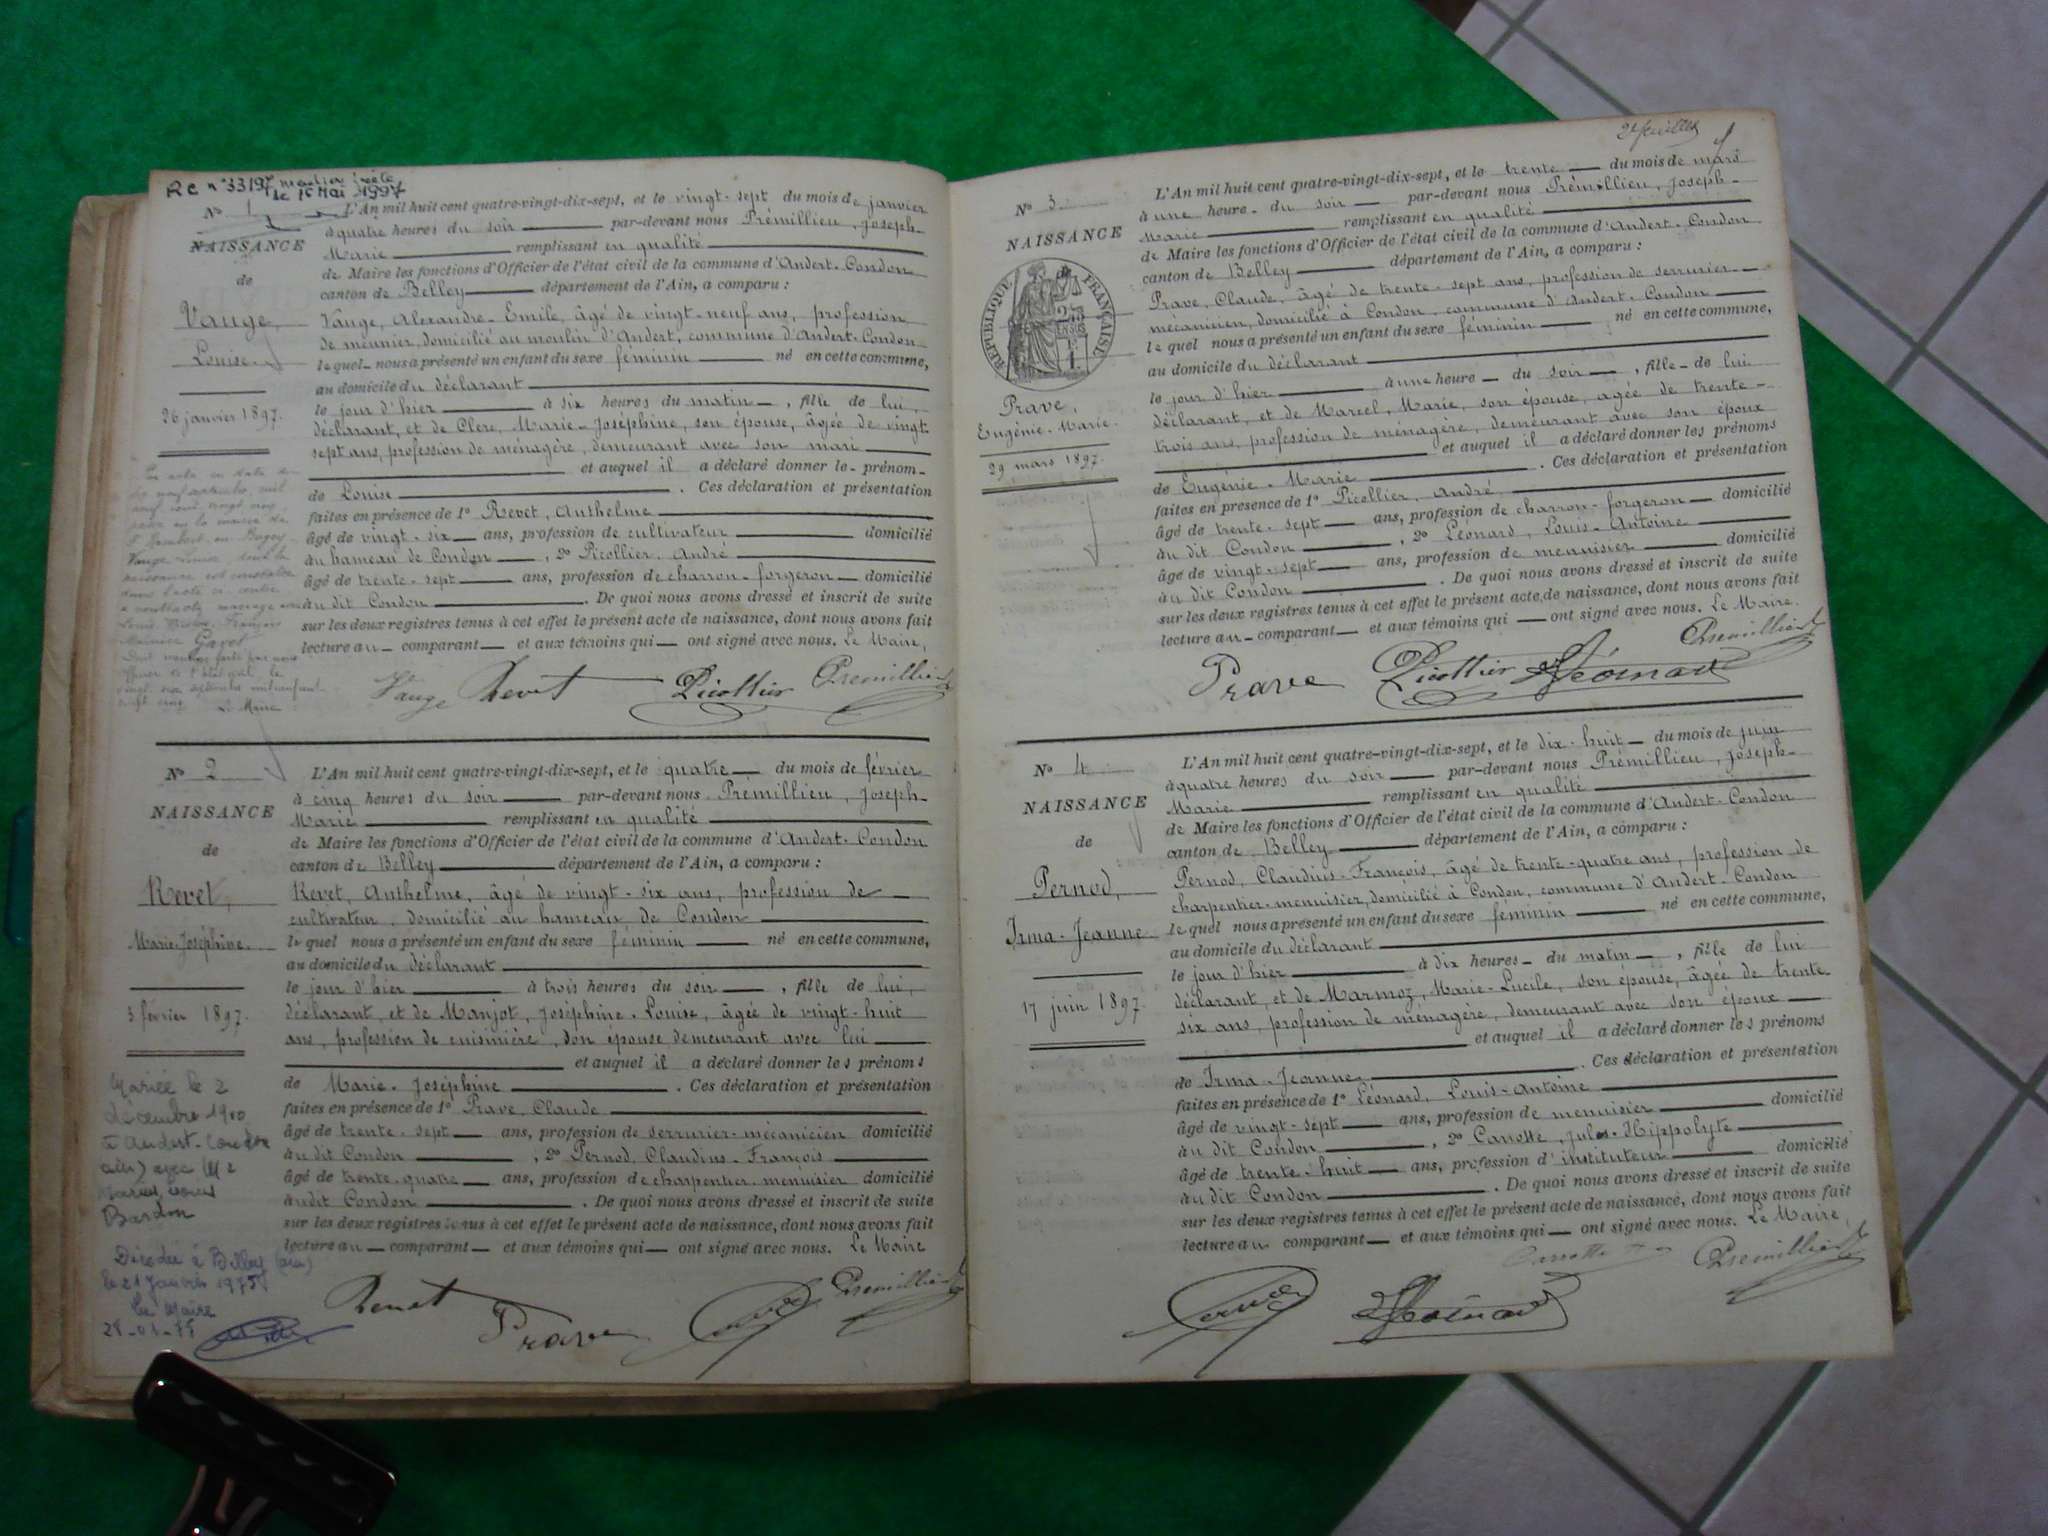 RC n° 33197
le 16 Mai 1997
N° 1
NAISSANCE
de
Vauge,
Louise.
26 janvier 1897.
L'An mil huit cent quatre-vingt-dix-sept, et le vingt-sept du mois de janvier
à quatre heures du soir par-devant nous Prémillieu, Joseph-
Marie remplissant en qualité
de Maire les fonctions d'Officier de l'état civil de la commune d'Andert-Condon
canton de Belley département de l'Ain, a comparu :
Vauge, Alexandre-Emile, âgé de vingt-neuf ans, profession
de meunier, domicilié au moulin d'Andert, commune d'Andert-Condon
lequel nous a présenté un enfant du sexe féminin né en cette commune,
au domicile du déclarant
le jour d'hier à six heures du matin, fille de lui,
déclarant, et de Clerc, Marie-Joséphine, son épouse, âgée de vingt
sept ans, profession de ménagère, demeurant avec son mari
et auquel il a déclaré donner le prénom
de Louise. Ces déclaration et présentation
faites en présence de 1° Revet, Anthelme
âgé de vingt-six ans, profession de cultivateur domicilié
au hameau de Condon, 2° Picollier, André
âgé de trente-sept ans, profession de charron-forgeron domicilié
au dit Condon. De quoi nous avons dressé et inscrit de suite
sur les deux registres tenus à cet effet le présent acte de naissance, dont nous avons fait
lecture au comparant et aux témoins qui ont signé avec nous. Le Maire,
Vauge Revet Picollier Prémillieu
Vauge Louise, dont la
naissance est constatée
dans l'acte ci-contre
a contracté mariage avec
Gavet
Le Maire
N° 2
NAISSANCE
de
Revet,
Marie-Joséphine.
3 février 1897.
L'An mil huit cent quatre-vingt-dix-sept, et le quatre du mois de février
à cinq heures du soir par-devant nous Prémillieu, Joseph-
Marie remplissant en qualité
de Maire les fonctions d'Officier de l'état civil de la commune d'Andert-Condon
canton de Belley département de l'Ain, a comparu :
Revet, Anthelme, âgé de vingt-six ans, profession de
cultivateur, domicilié au hameau de Condon
lequel nous a présenté un enfant du sexe féminin né en cette commune,
au domicile du déclarant
le jour d'hier à trois heures du soir, fille de lui,
déclarant, et de Manjot, Joséphine-Louise, âgée de vingt-huit
ans, profession de cuisinière, son épouse demeurant avec lui
et auquel il a déclaré donner les prénoms
de Marie-Joséphine. Ces déclaration et présentation
faites en présence de 1° Prave, Claude
âgé de trente-sept ans, profession de serrurier-mécanicien domicilié
au dit Condon, 2° Pernod, Claudius-François
âgé de trente-quatre ans, profession de charpentier-menuisier domicilié
audit Condon. De quoi nous avons dressé et inscrit de suite
sur les deux registres tenus à cet effet le présent acte de naissance, dont nous avons fait
lecture au comparant et aux témoins qui ont signé avec nous. Le Maire
Revet Prave Prémillieu
Mariée le 2
décembre 19
à Andert-Condon
(Ain) avec
Bardon
Décédée à Belley (Ain)
le 21 Janvier 1975
le Maire
N° 3
NAISSANCE
RÉPUBLIQUE FRANÇAISE
Prave,
Eugénie-Marie.
29 mars 1897.
2e feuillet
L'An mil huit cent quatre-vingt-dix-sept, et le trente du mois de mars
à une heure du soir par-devant nous Prémillieu, Joseph-
Marie remplissant en qualité
de Maire les fonctions d'Officier de l'état civil de la commune d'Andert-Condon
canton de Belley département de l'Ain, a comparu :
Prave, Claude, âgé de trente-sept ans, profession de serrurier-
mécanicien, domicilié à Condon, commune d'Andert-Condon
lequel nous a présenté un enfant du sexe féminin né en cette commune,
au domicile du déclarant
le jour d'hier à une heure du soir, fille de lui
déclarant, et de Marcel, Marie, son épouse, âgée de trente-
trois ans, profession de ménagère, demeurant avec son époux
et auquel il a déclaré donner les prénoms
de Eugénie-Marie. Ces déclaration et présentation
faites en présence de 1° Picollier, André,
âgé de trente-sept ans, profession de charron-forgeron domicilié
au dit Condon, 2° Léonard, Louis-Antoine
âgé de vingt-sept ans, profession de menuisier domicilié
au dit Condon. De quoi nous avons dressé et inscrit de suite
sur les deux registres tenus à cet effet le présent acte de naissance, dont nous avons fait
lecture au comparant et aux témoins qui ont signé avec nous. Le Maire.
Prave Picollier Léonard Prémillieu
N° 4
NAISSANCE
de
Pernod,
Irma-Jeanne.
17 juin 1897.
L'An mil huit cent quatre-vingt-dix-sept, et le dix-huit du mois de juin
à quatre heures du soir par-devant nous Prémillieu, Joseph-
Marie remplissant en qualité
de Maire les fonctions d'Officier de l'état civil de la commune d'Andert-Condon
canton de Belley département de l'Ain, a comparu :
Pernod, Claudius-François, âgé de trente-quatre ans, profession de
charpentier-menuisier, domicilié à Condon, commune d'Andert-Condon
lequel nous a présenté un enfant du sexe féminin né en cette commune,
au domicile du déclarant
le jour d'hier à dix heures du matin, fille de lui
déclarant, et de Marmoz, Marie-Lucile, son épouse, âgée de trente
six ans, profession de ménagère, demeurant avec son époux
et auquel il a déclaré donner les prénoms
de Irma-Jeanne. Ces déclaration et présentation
faites en présence de 1° Léonard, Louis-Antoine
âgé de vingt-sept ans, profession de menuisier domicilié
au dit Condon, 2° Carrotte, Jules-Hippolyte
âgé de trente-huit ans, profession d'instituteur domicilié
au dit Condon. De quoi nous avons dressé et inscrit de suite
sur les deux registres tenus à cet effet le présent acte de naissance, dont nous avons fait
lecture au comparant et aux témoins qui ont signé avec nous. Le Maire,
Pernod Léonard Carrotte Prémillieu